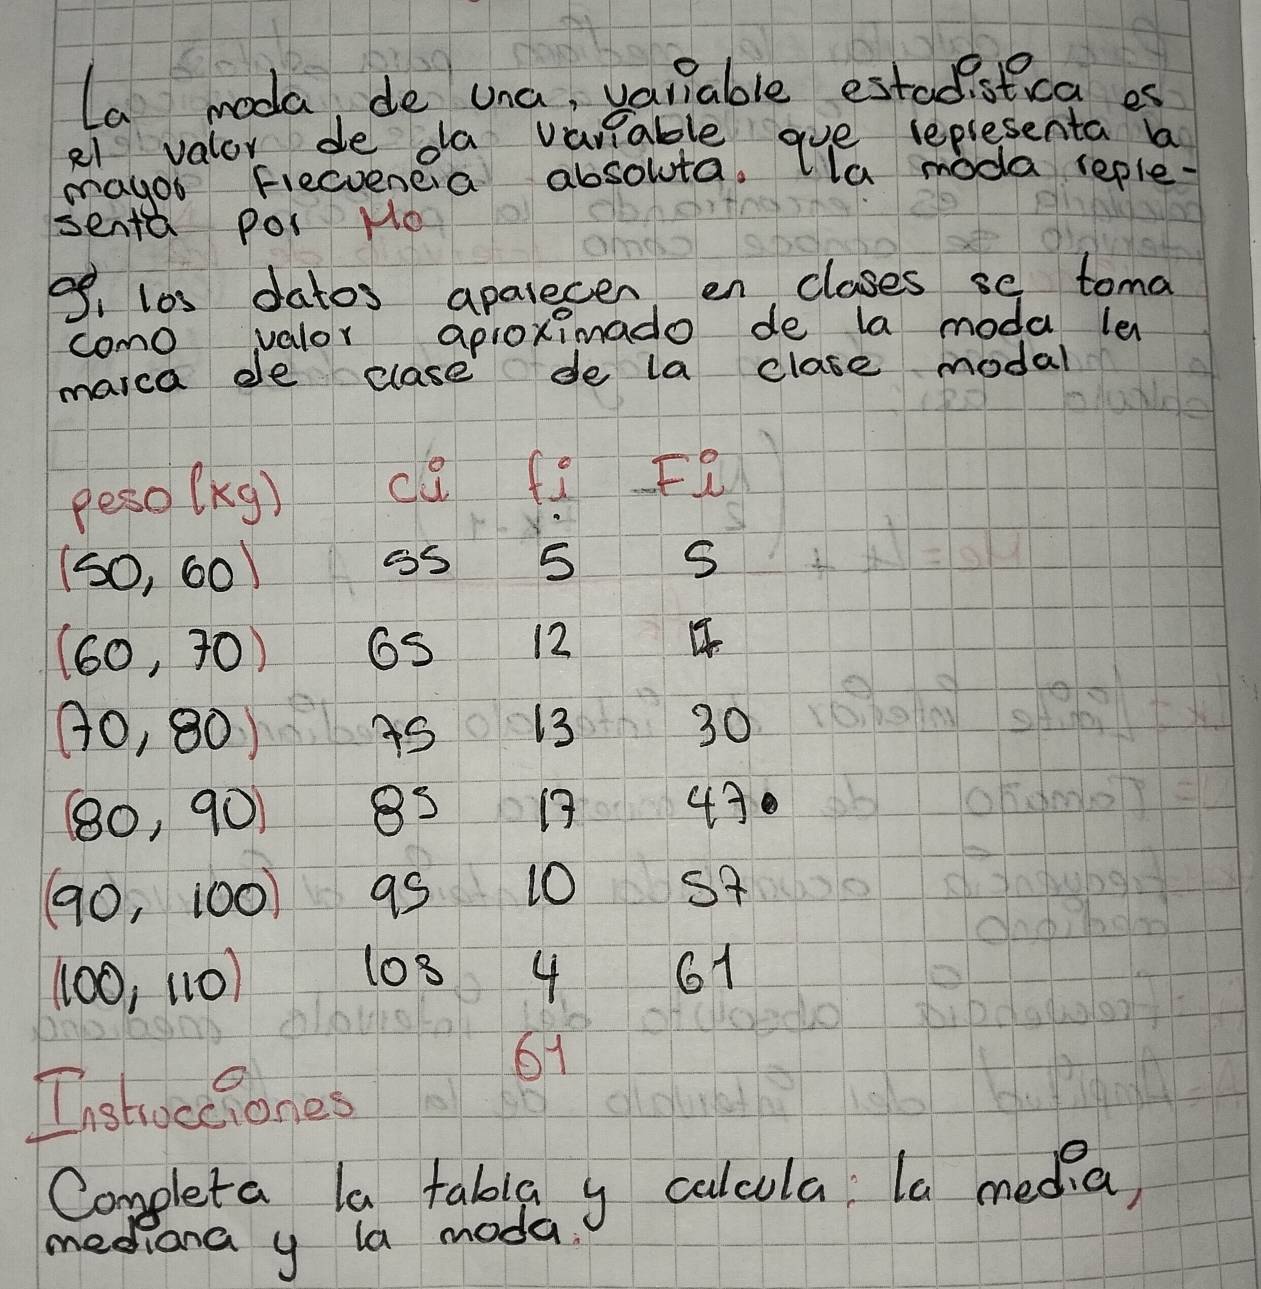 La moda de una, variable estadistica es
el valor de la variable que representa la
mayor Frecuencia absoluta. la moda repre-
senta por Mo
Si los datos aparecen en clases se toma
como valor aproximado de la moda la
marca de clase de la clase modal
peso (kg) ci fi Fi
(50, 60) 55 5 5
(60, 70) 65 12 17
(70, 80) 75 13 30
(80, 90) 85 17 47
(90, 100) 95 10 57
(100, 110) 105 4 61
61
Instrucciones
Completa la tabla y calcula: la media,
mediana y la moda.